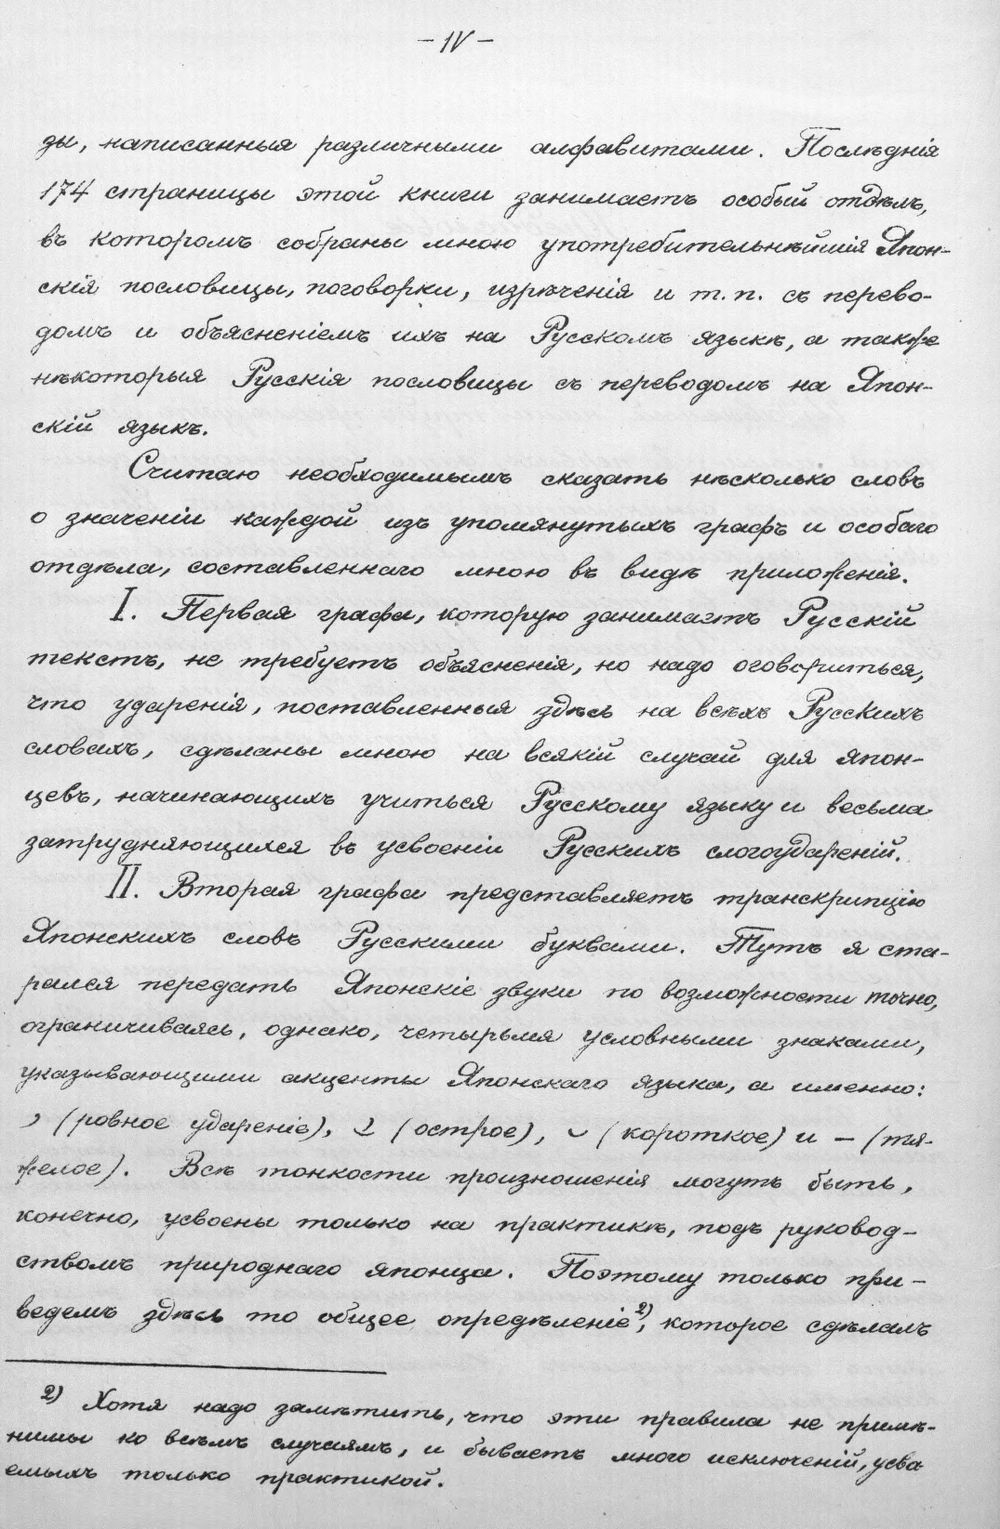 – IV –
ды, написанныя различными алфавитами. Послѣднія
174 страницы этой книги занимаетъ особый отдѣлъ,
въ которомъ собраны мною употребительнѣйшія Япон-
скія пословицы, поговорки, изрѣченія и т. п. съ перево-
домъ и объясненіемъ ихъ на Русскомъ языкѣ, а также
нѣкоторыя Русскія пословицы съ переводомъ на Япон-
скій языкъ.
Считаю необходимымъ сказать нѣсколько словъ
о значеніи каждой изъ упомянутыхъ графъ и особаго
отдѣла, составленнаго мною въ видѣ приложенія.
I. Первая графа, которую занимаетъ Русскій
текстъ, не требуетъ объясненія, но надо оговориться,
что ударенія, поставленныя здѣсь на всѣхъ Русскихъ
словахъ, сдѣланы мною на всякій случай для япон-
цевъ, начинающихъ учиться Русскому языку и весьма
затрудняющихся въ усвоеніи Русскихъ слогоудареній.
II. Вторая графа представляетъ транскрипцію
Японскихъ словъ Русскими буквами. Тутъ я ста-
рался передать Японскіе звуки по возможности точно,
ограничиваясь, однако, четырьмя условными знаками,
указывающими акценты Японскаго языка, а именно:
(ровное удареніе), (острое), ⌣ (короткое) и – (тя-
желое). Всѣ тонкости произношенія могутъ быть,
конечно, усвоены только на практикѣ, подъ руковод-
ствомъ природнаго японца. Поэтому только при-
ведемъ здѣсь то общее опредѣленіе²⁾, которое сдѣлалъ
²⁾ Хотя надо замѣтить, что эти правила не примѣ-
нимы ко всѣмъ случаямъ, и бываетъ много исключеній, усва
емыхъ только практикой.